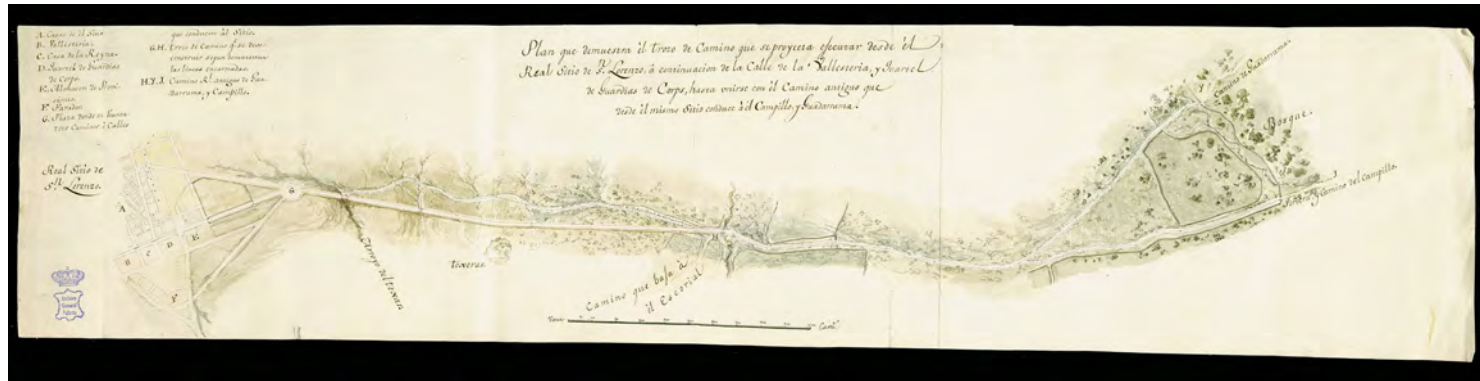 A. Casas de el Sitio
B. Vallesteria.
C. Casa de la Reyna.
D. Quartel de Guardias
de Corps.
E. Almacen de
F. Paradon
G. Plaza donde se
Caminos ò Calles
que conducen àl Sitio.
G.H. trozo de Camino q.e se
construir segun demuestran
las lineas encarnadas.
H.Y.J. Camino R.l antiguo de Gua-
darrama, y Campillo.
Plan que demuestra èl trozo de Camino que se proyecta efecutar desde èl
Real Sitio de S.n Lorenzo, à continuacion de la Calle de la Vallesteria, y Quartel
de Guardias de Corps, hasta unirse con èl Camino antiguo que
desde èl mismo Sitio conduce à èl Campillo, y Guadarrama.
Real Sitio de
S.n Lorenzo.
A
B
C
D
E
F
G
H
Y
J
Arroyo del
Camino que baja à
èl Escorial
Camino de Guadarrama.
Bosque.
y Camino del Campillo.